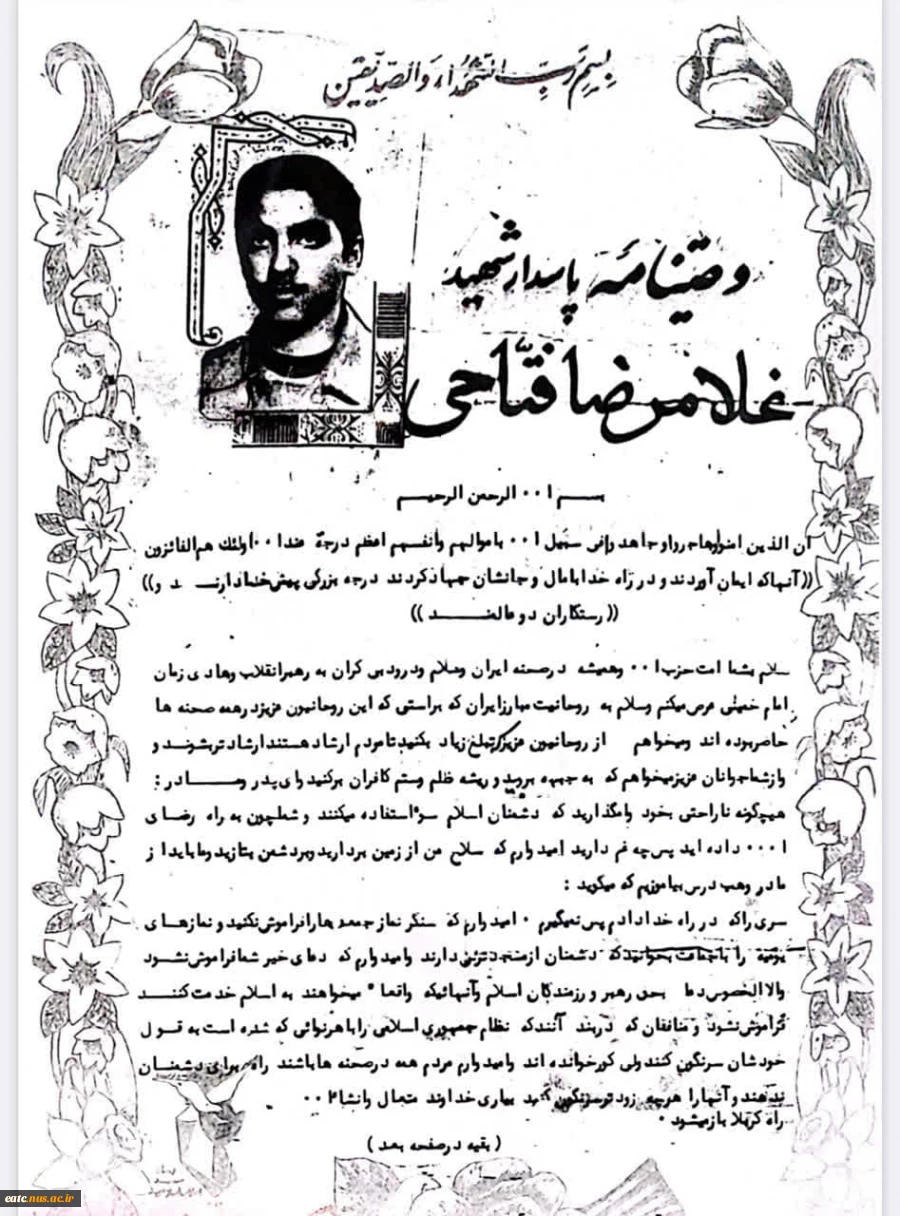 بسم رب الشهداء والصدیقین
وصیتنامهٔ پاسدار شهید
غلامرضا فتاحی
بسم ا۰۰ الرحمن الرحیم
ان الذین امنوا وهاجرو او جاهد وافی سبیل ا۰۰ باموالهم وانفسهم اعظم درجة عندا۰۰ اولئك هم الفائزون
((آنهاکه ایمان آوردند و در راه خدا بامال و جانشان جهاد کردند درجه بزرگی پیش خدا دارند و))
((رستگاران دو عالمند))
سلام بشما امت حزب ا۰۰ وهمیشه درصحنه ایران وسلام ودرود بی کران به رهبر انقلاب وهادی زمان
امام خمینی عرض میکنم وسلام به روحانیت مبارز ایران که براستی که این روحانیون عزیز در همه صحنه ها
حاضر بوده اند ومیخواهم از روحانیون عزیز که تبلغ زیاد بکنید تا مردم ارشاد هستند ارشاد تر بشوند و
واز شما جوانان عزیز میخواهم که به جبهه بروید و ریشه ظلم وستم کافران برکنید وای پدر ومادر :
هیچگونه ناراحتی بخود وامگذارید که دشمنان اسلام سوء استفاده میکنند و شما چون به راه رضای
ا۰۰۰ داده اید پس چه غم دارید امیدوارم که سلاح من از زمین بردارید وبر دشمن بتازید وما باید از
مادر وهب درس بیاموزیم که میگوید :
سری راکه در راه خدا دادم پس نمیگیرم ۰ امیدوارم که سنگر نماز جمعه هارا فراموش نکنید و نمازهای
یومیه را با جماعت بخوانید که دشمنان از مسجد ترس دارند وامیدوارم که دعای خیر شما فراموش نشود
والا الخصوص دعا بحق رهبر و رزمندگان اسلام وآنهائیکه واقعا" میخواهند به اسلام خدمت کنند
فراموش نشود و منافقان که دربند آنند که نظام جمهوری اسلامی را با هر نوائی که شده است به قول
خودشان سرنگون کنند ولی کور خوانده اند وامیدوارم مردم همه درصحنه ها باشند راه برای دشمنان
ندهند و آنها را هر چه زود تر سرنگون کنند بیاری خداوند متعال وانشا۰۰۱۲
راه کربلا باز میشود ۰
( بقیه درصفحه بعد )
eatc.nus.ac.ir